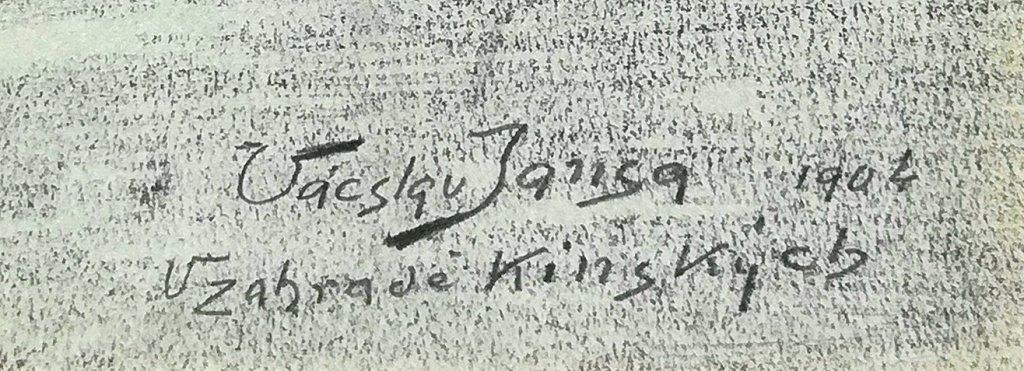 Vácslav Jansa 1904
V zahradě Kinských